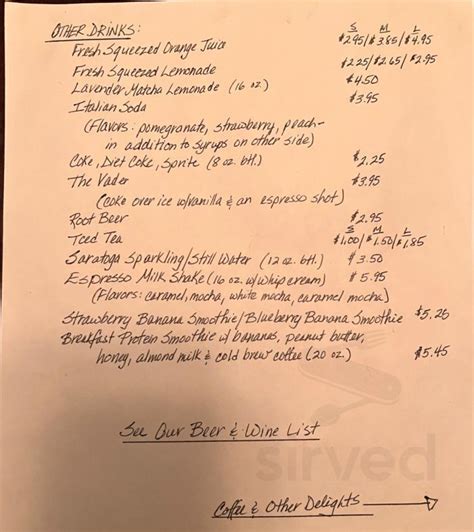 OTHER DRINKS: S M L
Fresh Squeezed Orange Juice $2.95/$3.85/$4.95
Fresh Squeezed Lemonade $2.25/$2.65/$2.95
Lavender Matcha Lemonade (16 oz) $4.50
Italian Soda $3.95
(Flavors: pomegranate, strawberry, peach -
in addition to syrups on other side)
Coke, Diet Coke, Sprite (8 oz. btl.) $2.25
The Vader $3.95
(coke over ice w/vanilla & an espresso shot)
Root Beer $2.95
S M L
Iced Tea $1.00/$1.50/$1.85
Saratoga Sparkling/Still Water (12 oz. btl.) $3.50
Espresso Milk Shake (16 oz. w/whip cream) $5.95
(Flavors: caramel, mocha, white mocha, caramel mocha)
Strawberry Banana Smoothie/Blueberry Banana Smoothie $5.25
Breakfast Protein Smoothie w/ bananas, peanut butter,
honey, almond milk & cold brew coffee (20 oz.) $5.45
See Our Beer & Wine List
sirved
Coffee & Other Delights